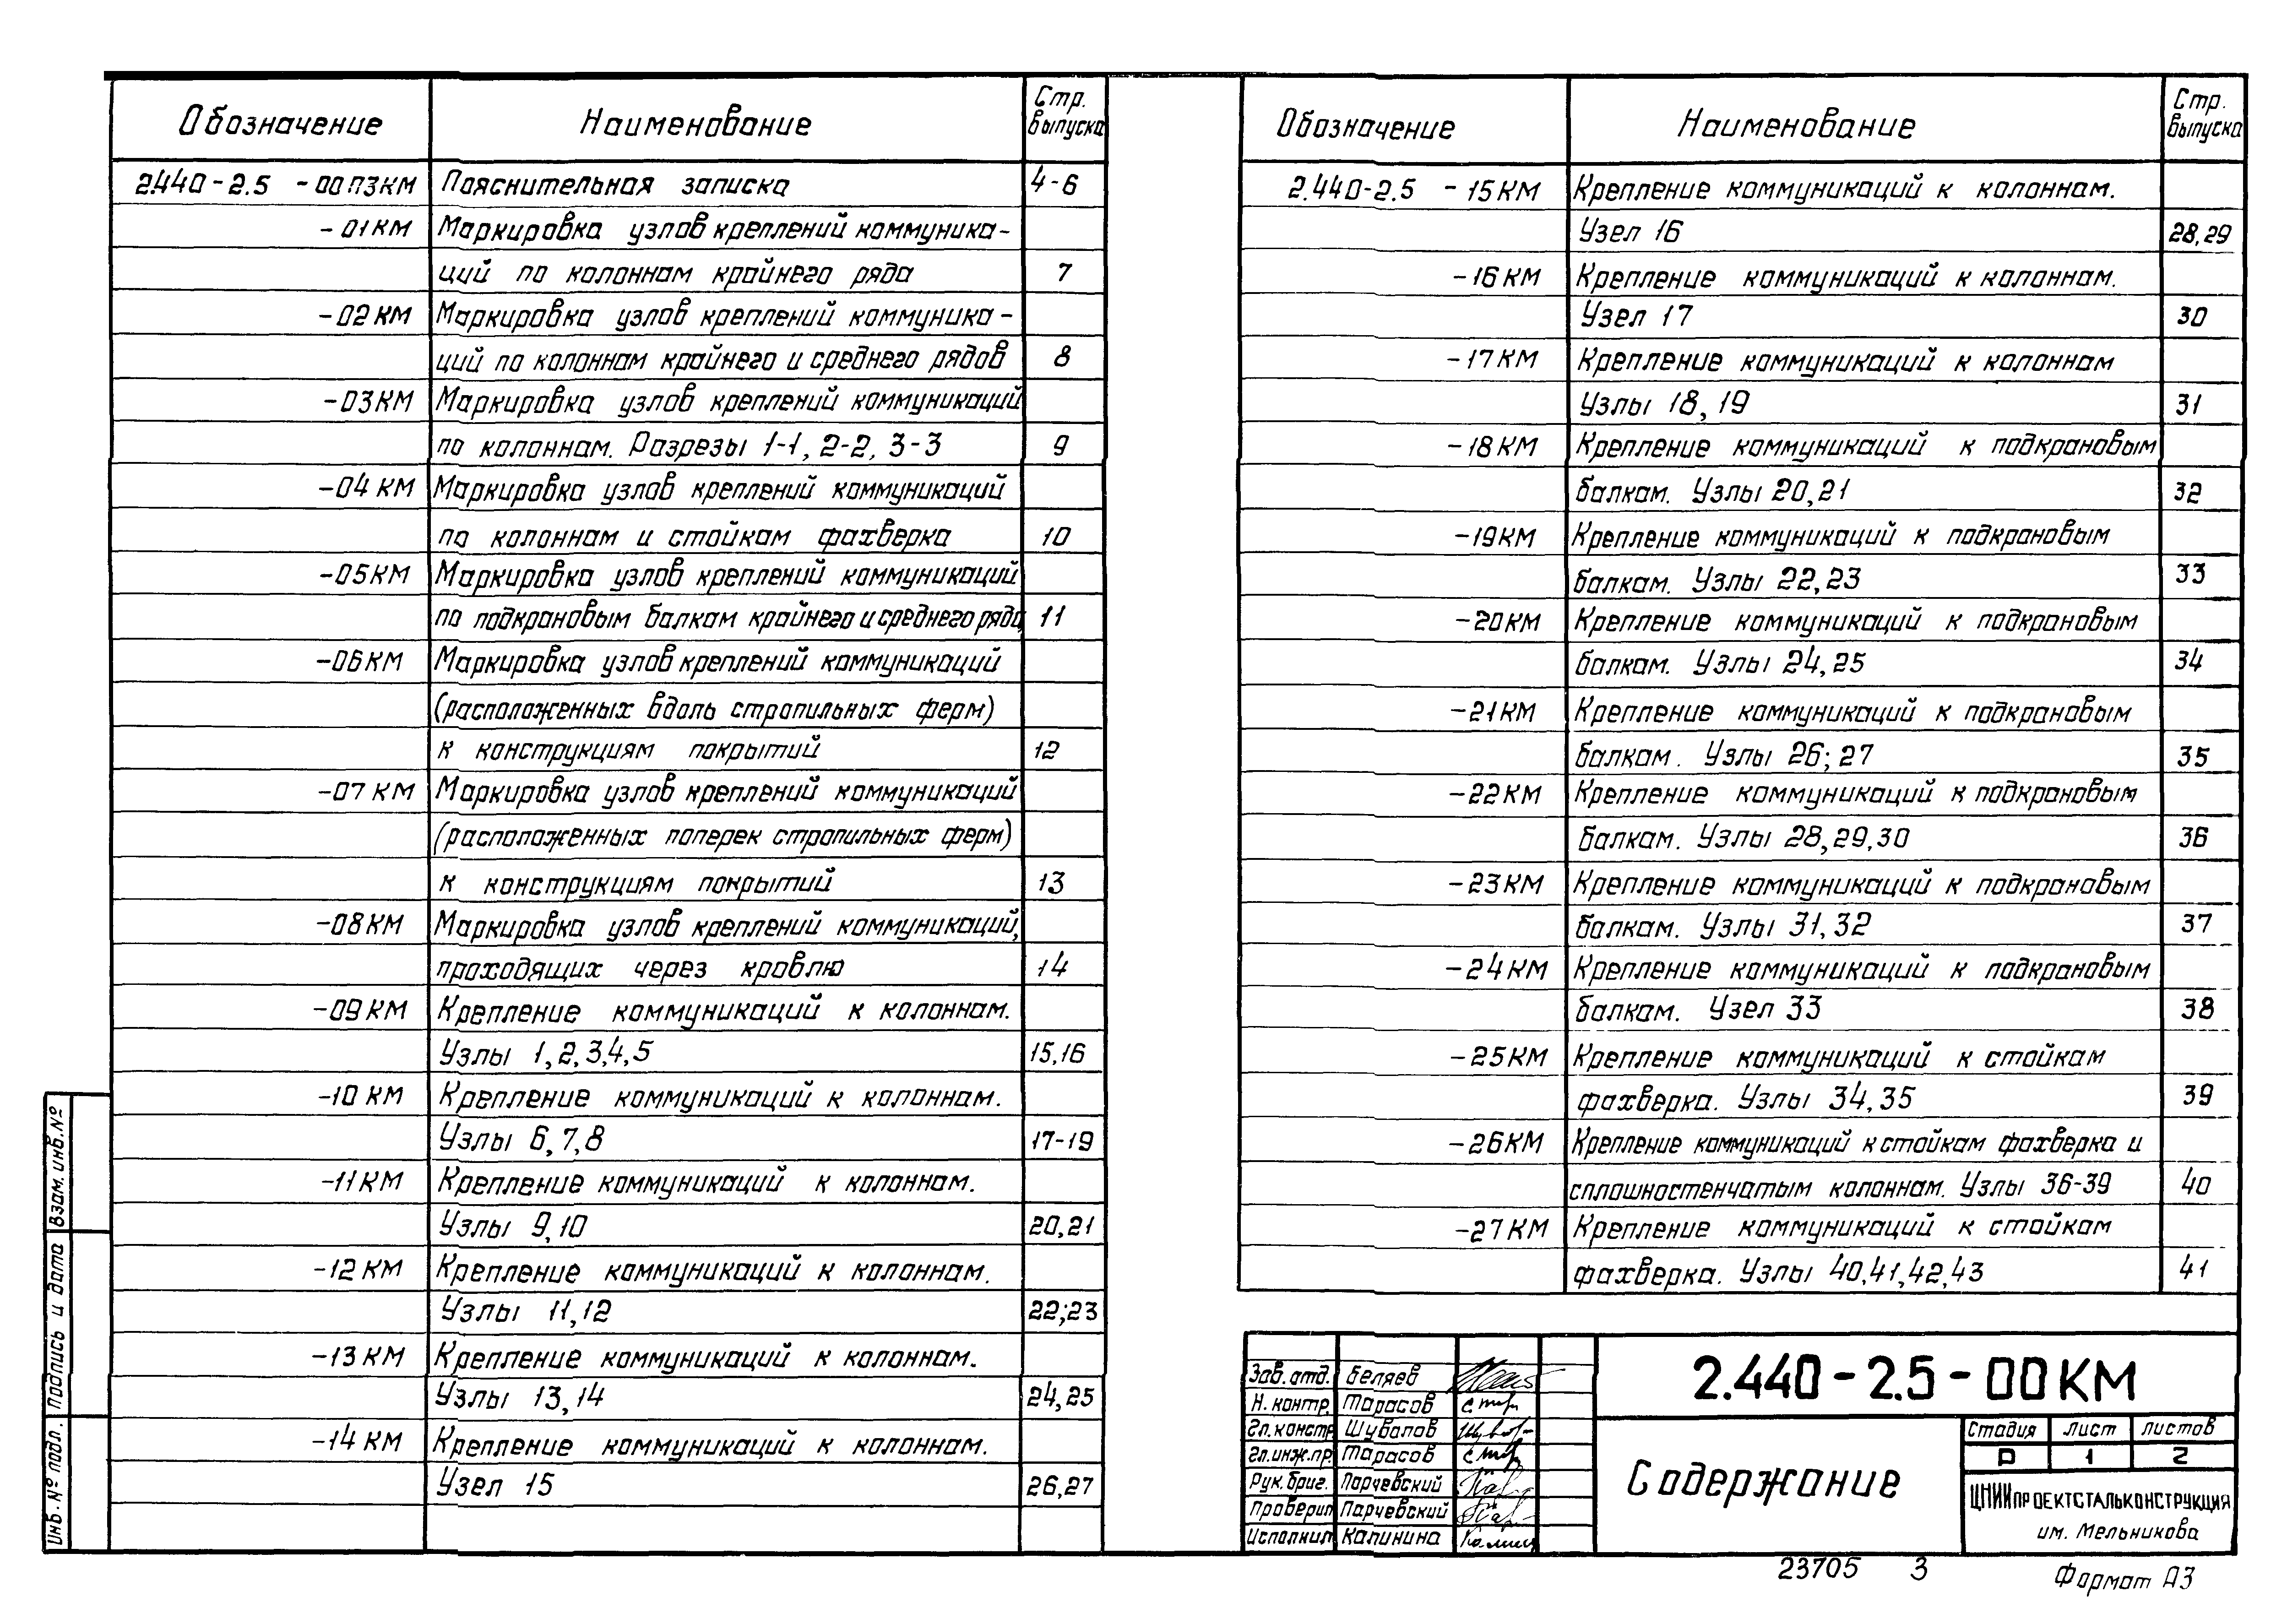 Обозначение Наименование Стр. выпуска
2.440-2.5 -00ПЗКМ Пояснительная записка 4-6
-01КМ Маркировка узлов креплений коммуника-
ций по колоннам крайнего ряда 7
-02КМ Маркировка узлов креплений коммуника-
ций по колоннам крайнего и среднего рядов 8
-03КМ Маркировка узлов креплений коммуникаций
по колоннам. Разрезы 1-1, 2-2, 3-3 9
-04КМ Маркировка узлов креплений коммуникаций
по колоннам и стойкам фахверка 10
-05КМ Маркировка узлов креплений коммуникаций
по подкрановым балкам крайнего и среднего ряда 11
-06КМ Маркировка узлов креплений коммуникаций
(расположенных вдоль стропильных ферм)
к конструкциям покрытий 12
-07КМ Маркировка узлов креплений коммуникаций
(расположенных поперек стропильных ферм)
к конструкциям покрытий 13
-08КМ Маркировка узлов креплений коммуникаций,
проходящих через кровлю 14
-09КМ Крепление коммуникаций к колоннам.
Узлы 1,2,3,4,5 15,16
-10КМ Крепление коммуникаций к колоннам.
Узлы 6,7,8 17-19
-11КМ Крепление коммуникаций к колоннам.
Узлы 9,10 20,21
-12КМ Крепление коммуникаций к колоннам.
Узлы 11,12 22;23
-13КМ Крепление коммуникаций к колоннам.
Узлы 13,14 24,25
-14КМ Крепление коммуникаций к колоннам.
Узел 15 26,27
Обозначение Наименование Стр. выпуска
2.440-2.5 -15КМ Крепление коммуникаций к колоннам.
Узел 16 28,29
-16КМ Крепление коммуникаций к колоннам.
Узел 17 30
-17КМ Крепление коммуникаций к колоннам
Узлы 18,19 31
-18КМ Крепление коммуникаций к подкрановым
балкам. Узлы 20,21 32
-19КМ Крепление коммуникаций к подкрановым
балкам. Узлы 22,23 33
-20КМ Крепление коммуникаций к подкрановым
балкам. Узлы 24,25 34
-21КМ Крепление коммуникаций к подкрановым
балкам. Узлы 26;27 35
-22КМ Крепление коммуникаций к подкрановым
балкам. Узлы 28,29,30 36
-23КМ Крепление коммуникаций к подкрановым
балкам. Узлы 31,32 37
-24КМ Крепление коммуникаций к подкрановым
балкам. Узел 33 38
-25КМ Крепление коммуникаций к стойкам
фахверка. Узлы 34,35 39
-26КМ Крепление коммуникаций к стойкам фахверка и
сплошностенчатым колоннам. Узлы 36-39 40
-27КМ Крепление коммуникаций к стойкам
фахверка. Узлы 40,41,42,43 41
Инв. № подл. Подпись и дата Взам. инв. №
Зав. отд. Беляев
Н. контр. Тарасов
Гл. констр. Шувалов
Гл. инж. пр. Тарасов
Рук. бриг. Парчевский
Проверил Парчевский
Исполнил Калинина
2.440-2.5-00КМ
Содержание
Стадия Лист Листов
Р 1 2
ЦНИИПРОЕКТСТАЛЬКОНСТРУКЦИЯ
им. Мельникова
23705 3
Формат А3